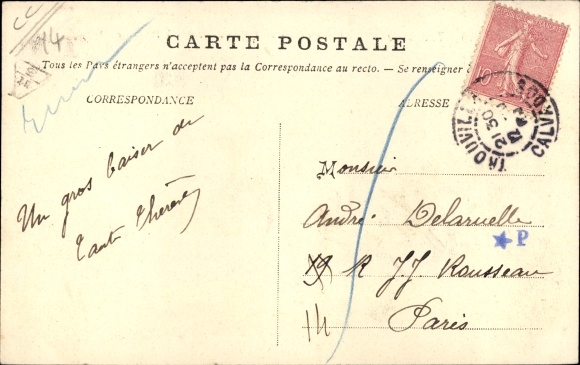 44
CARTE POSTALE
Tous les Pays étrangers n'acceptent pas la Correspondance au recto. — Se renseigner à
CORRESPONDANCE
ADRESSE
10
TROUVILLE
CALVADOS
21 30
Un gros baiser de
Tante Thérèse
Monsieur
André Delaruelle
★ P
19 R J.J. Rousseau
14
Paris